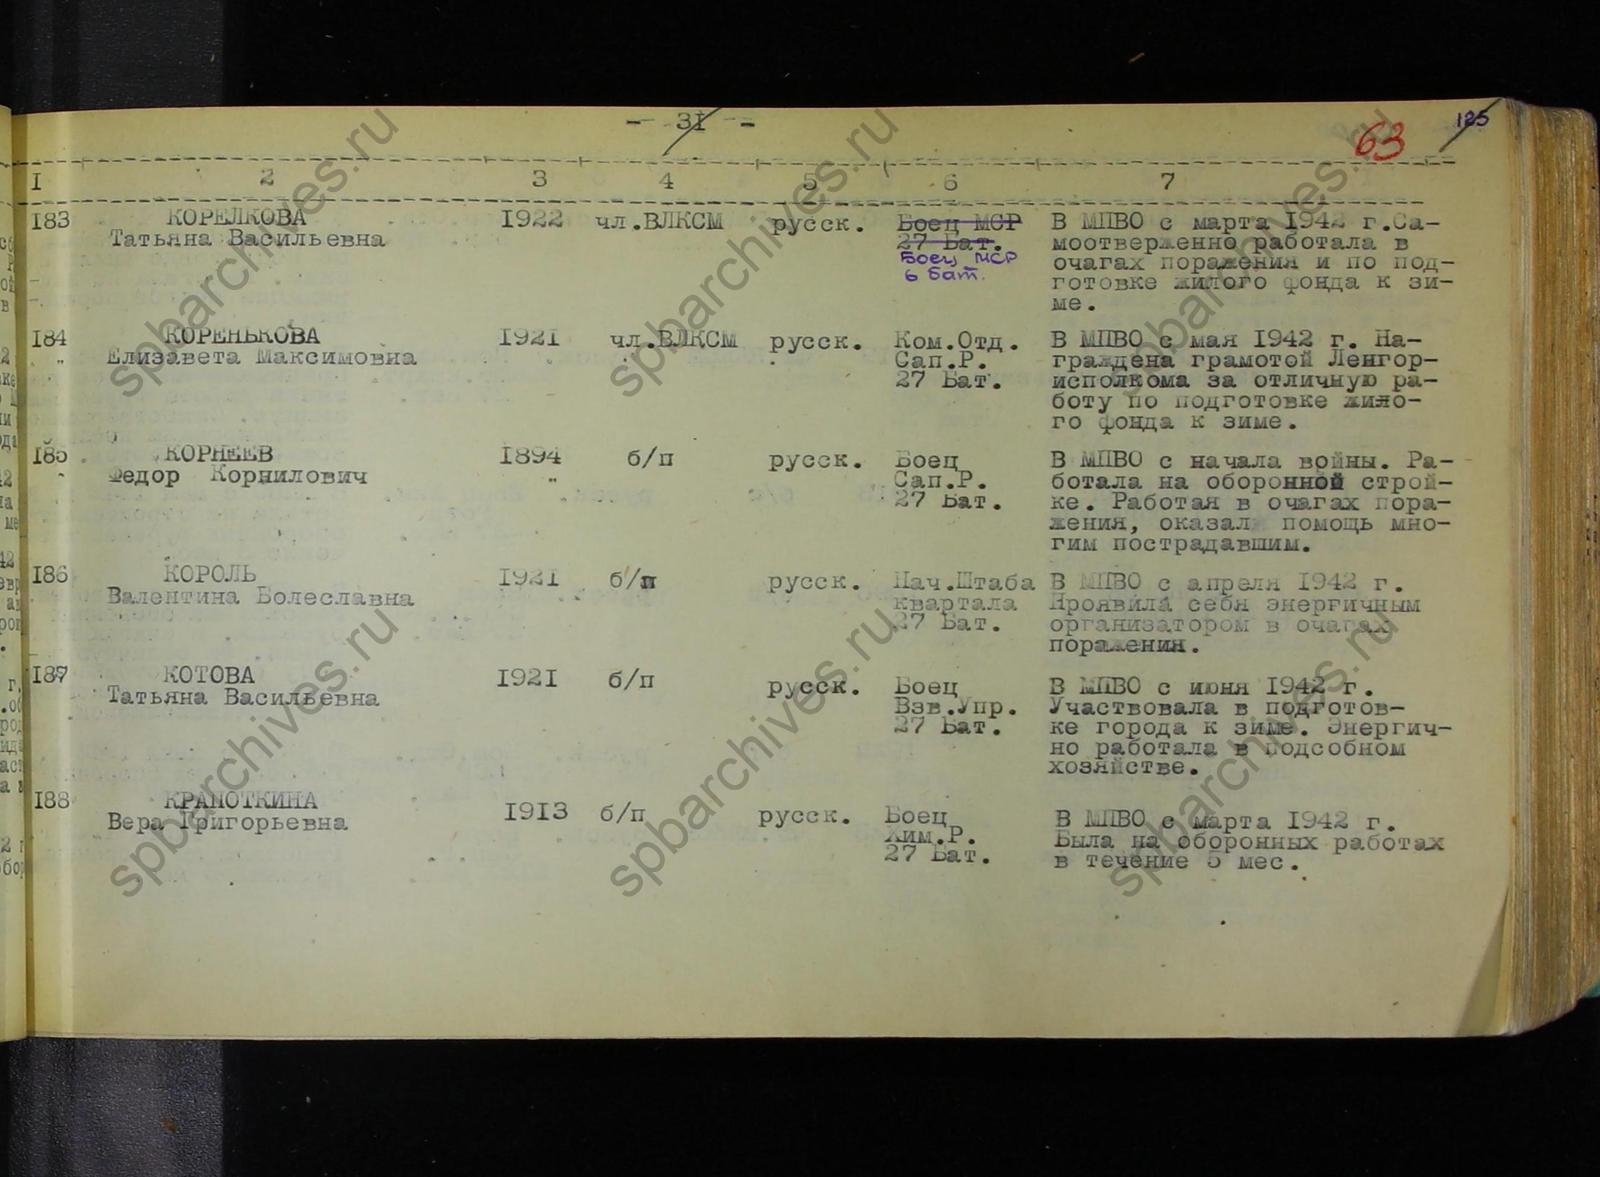 - 31 -
63
125
I 2 3 4 5 6 7
183 КОРЕЛКОВА 1922 чл.ВЛКСМ русск. Боец МСР В МПВО с марта 1942 г.Са-
Татьяна Васильевна 27 Бат. моотверженно работала в
Боец МСР очагах поражения и по под-
6 бат. готовке жилого фонда к зи-
ме.
184 КОРЕНЬКОВА 1921 чл.ВЛКСМ русск. Ком.Отд. В МПВО с мая 1942 г. На-
Елизавета Максимовна Сап.Р. граждена грамотой Ленгор-
27 Бат. исполкома за отличную ра-
боту по подготовке жило-
го фонда к зиме.
185 КОРНЕЕВ 1894 б/п русск. Боец В МПВО с начала войны. Ра-
Федор Корнилович Сап.Р. ботала на оборонной строй-
27 Бат. ке. Работая в очагах пора-
жения, оказал помощь мно-
гим пострадавшим.
186 КОРОЛЬ 1921 б/п русск. Нач.Штаба В МПВО с апреля 1942 г.
Валентина Болеславна квартала Проявила себя энергичным
27 Бат. организатором в очагах
поражения.
187 КОТОВА 1921 б/п русск. Боец В МПВО с июня 1942 г.
Татьяна Васильевна Взв.Упр. Участвовала в подготов-
27 Бат. ке города к зиме. Энергич-
но работала в подсобном
хозяйстве.
188 КРАПОТКИНА 1913 б/п русск. Боец В МПВО с марта 1942 г.
Вера Григорьевна Хим.Р. Была на оборонных работах
27 Бат. в течение 5 мес.
spbarchives.ru
spbarchives.ru
spbarchives.ru
spbarchives.ru
spbarchives.ru
spbarchives.ru